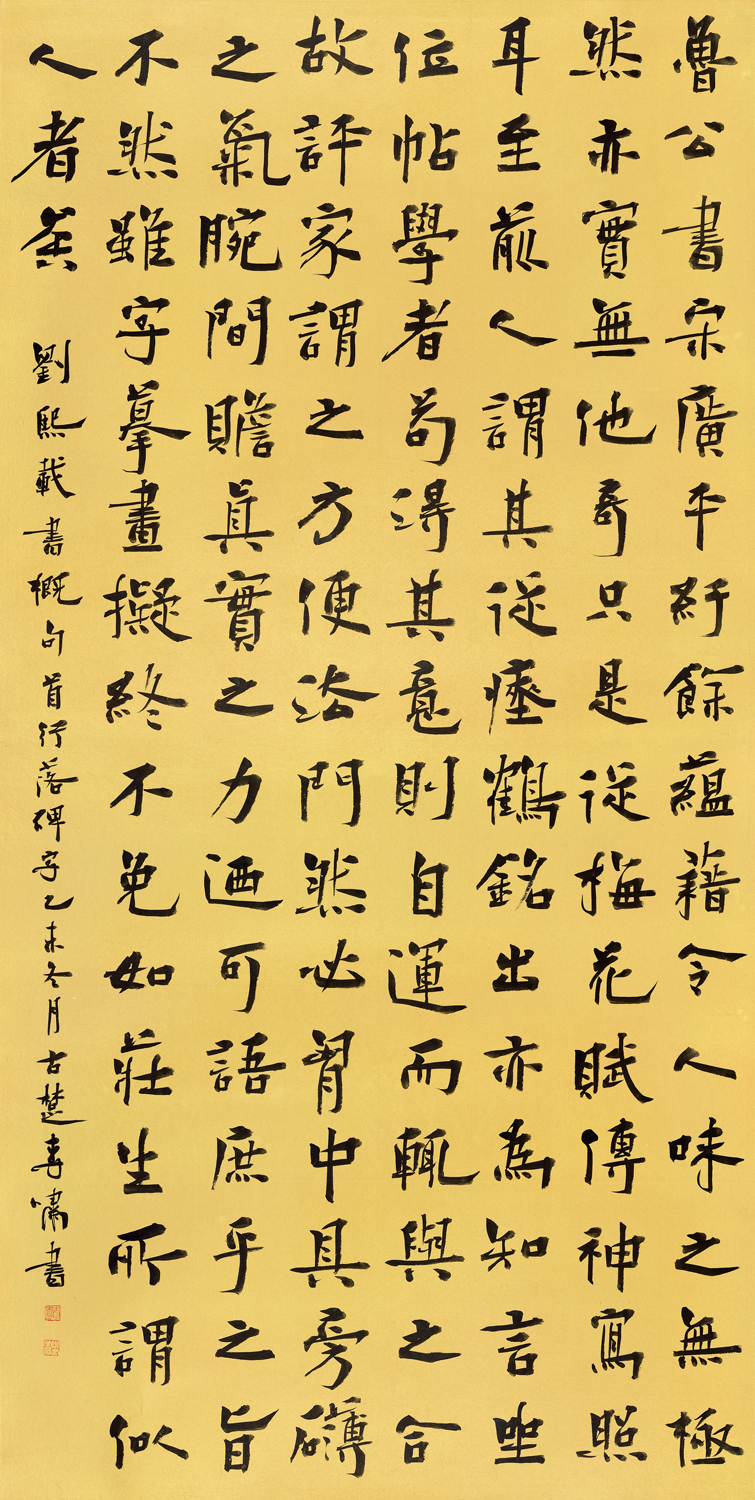 魯公書宋廣平紆餘蘊藉令人味之無極
然亦實無他奇只是從梅花賦傳神寫照
耳至前人謂其從瘞鶴銘出亦為知言坐
位帖學者苟得其意則自運而輒與之合
故評家謂之方便法門然必胷中具旁礴
之氣腕間贍真實之力迺可語庶乎之旨
不然雖字摹畫擬終不免如莊生所謂似
人者矣
劉熙載書概句首行落碑字乙未冬月古楚李嘯書